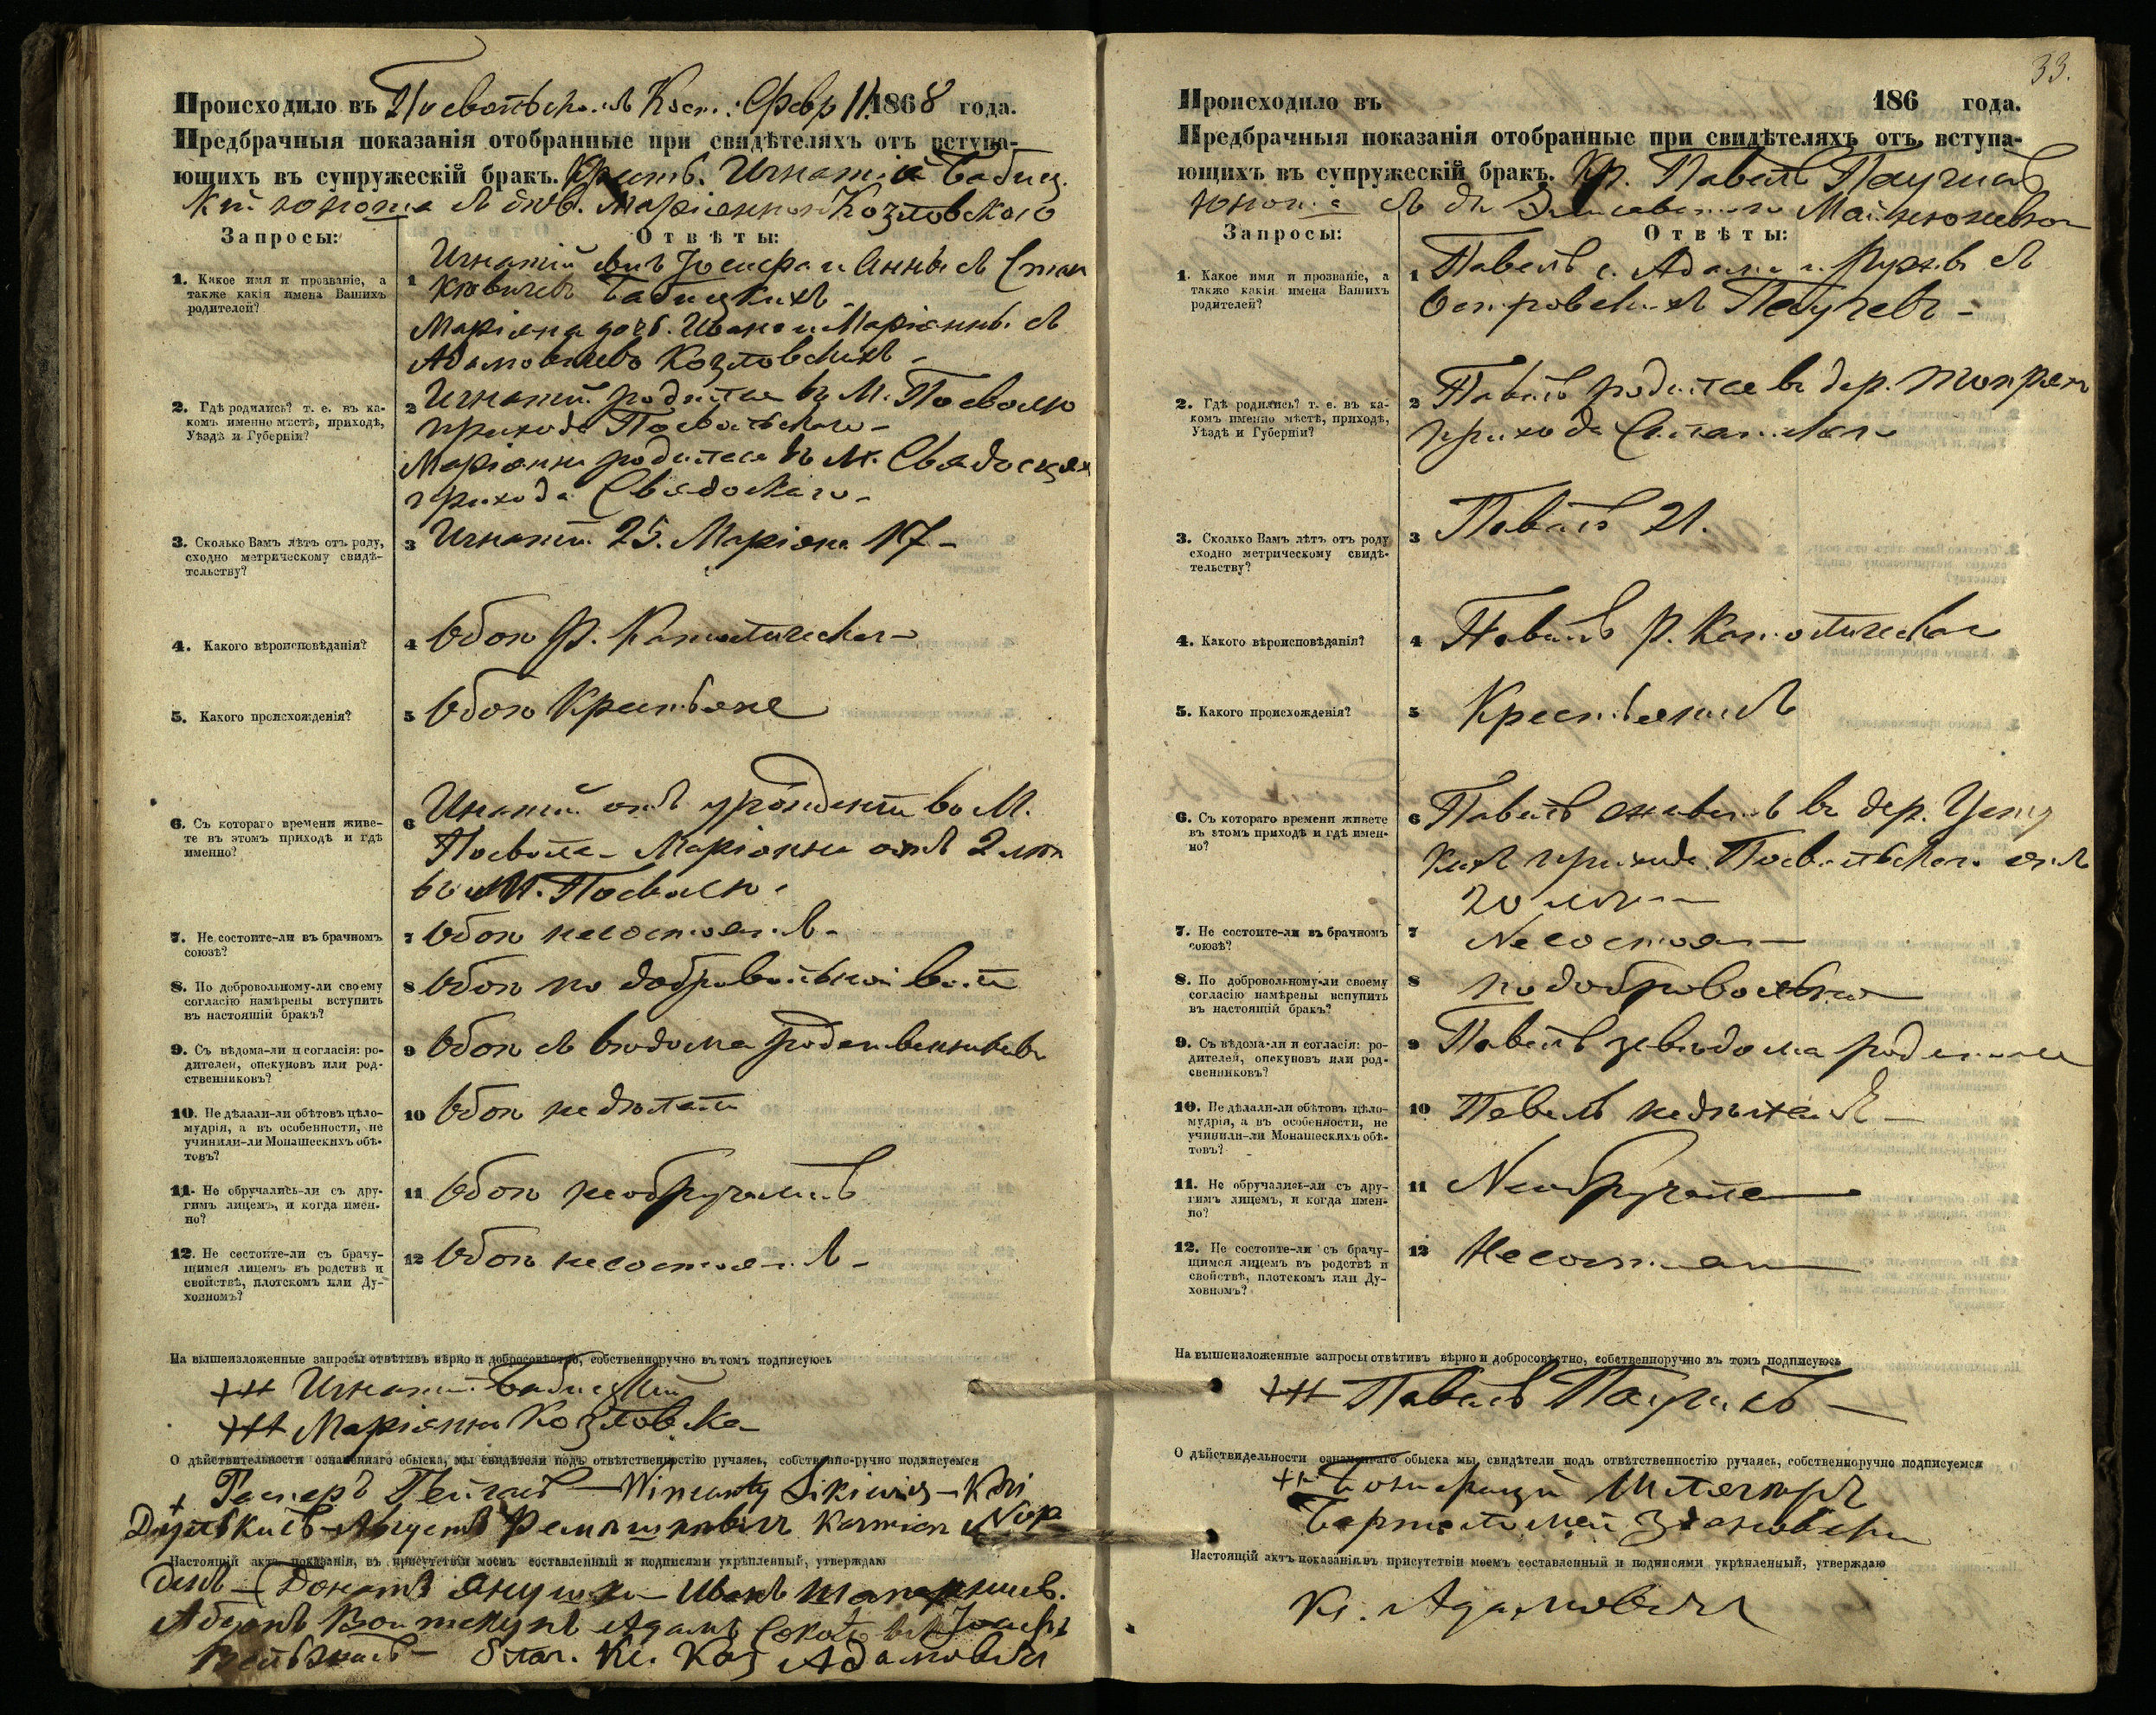 Происходило въ Посвольском Кост: Февр 11 1868 года.
Предбрачныя показанія отобранные при свидѣтеляхъ отъ вступа-
ющихъ въ супружескій бракъ. Игнатій Бабиц
кій юноша съ дѣв. Маріянною Козловскою
Запросы: Отвѣты:
1. Какое имя и прозваніе, а
также какія имена Вашихъ
родителей?
1 Игнатій сынъ Іосифа и Анны съ Стан
кевичевъ Бабицкихъ
Маріяна дочь Ивана и Маріянны съ
Адамовичевъ Козловскихъ
2. Гдѣ родились? т. е. въ ка-
комъ именно мѣстѣ, приходѣ,
Уѣздѣ и Губерніи?
2 Игнатій родился въ М. Посволю
прихода Посвольскаго
Маріянна родилася въ М. Свядосцях
прихода Свядоскаго
3. Сколько Вамъ лѣтъ отъ роду,
сходно метрическому свидѣ-
тельству?
3 Игнатій 25. Маріяна 17
4. Какого вѣроисповѣданія?
4 Обои Р. Католическаго
5. Какого происхожденія?
5 Обои Крестьяне
6. Съ котораго времени живе-
те въ этомъ приходѣ и гдѣ
именно?
6 Игнатій отъ урожденія во М.
Посволе Маріянна отъ 2 лѣтъ
въ М. Посволю
7. Не состоите-ли въ брачномъ
союзѣ?
7 Обои несостоятъ
8. По добровольному-ли своему
согласію намѣрены вступить
въ настоящій бракъ?
8 Обои по добровольной воли
9. Съ вѣдома-ли и согласія: ро-
дителей, опекуновъ или род-
ственниковъ?
9 Обои съ вѣдома родственниковъ
10. Не дѣлали-ли обѣтовъ цѣло-
мудрія, а въ особенности, не
учинили-ли Монашескихъ обѣ-
товъ?
10 Обои недѣлали
11. Не обручались-ли съ дру-
гимъ лицемъ, и когда имен-
но?
11 Обои необручались
12. Не состоите-ли съ брачу-
щимся лицемъ въ родствѣ и
свойствѣ, плотскомъ или Ду-
ховномъ?
12 Обои несостоятъ
На вышеизложенные запросы отвѣтивъ вѣрно и добросовѣстно, собственноручно въ томъ подписуюсь
+++ Игнатій Бабицкій
+++ Маріянна Козловска
О дѣйствительности означеннаго обыска, мы свидѣтели подъ отвѣтственностію ручаясь, собственно-ручно подписуемся
+ Гаспер Wincenty
Августъ
Настоящій актъ показанія, въ присутствіи моемъ составленный и подписями укрѣпленный, утверждаю
Донатъ Янушко Иванъ
Адамъ Іосифъ
Кс. Каз Адамовичъ
33.
Происходило въ 186 года.
Предбрачныя показанія отобранные при свидѣтеляхъ отъ вступа-
ющихъ въ супружескій бракъ. Кр. Павелъ
юноша съ дѣ Элисаветою
Запросы: Отвѣты:
1. Какое имя и прозваніе, а
также какія имена Вашихъ
родителей?
1 Павелъ с. Адама и съ
Островскихъ
2. Гдѣ родились? т. е. въ ка-
комъ именно мѣстѣ, приходѣ,
Уѣздѣ и Губерніи?
2 Павелъ родился въ дер.
прихода
3. Сколько Вамъ лѣтъ отъ роду
сходно метрическому свидѣ-
тельству?
3 Павелъ 21.
4. Какого вѣроисповѣданія?
4 Павелъ Р. Католическаго
5. Какого происхожденія?
5 Крестьянинъ
6. Съ котораго времени живете
въ этомъ приходѣ и гдѣ имен-
но?
6 Павелъ живетъ въ дер.
прихода Посвольскаго отъ
20 лѣтъ
7. Не состоите-ли въ брачномъ
союзѣ?
7 Несостоитъ
8. По добровольному-ли своему
согласію намѣрены вспупить
въ настоящій бракъ?
8 подобровольно
9. Съ вѣдома-ли и согласія: ро-
дителей, опекуновъ или род-
свенниковъ?
9 Павелъ зъ вѣдома
10. Не дѣлали-ли обѣтовъ цѣло-
мудрія, а въ особенности, не
учинили-ли Монашескихъ обѣ-
товъ?
10 Павелъ недѣлалъ
11. Не обручались-ли съ дру-
гимъ лицемъ, и когда имен-
но?
11 Необручался
12. Не состоите-ли съ брачу-
щимся лицемъ въ родствѣ и
свойствѣ, плотскомъ или Ду-
ховномъ?
12 Несостоитъ
На вышеизложенные запросы отвѣтивъ вѣрно и добросовѣстно, собственноручно въ томъ подписуюсь
+++ Павелъ
О дѣйствидельности означеннаго обыска мы свидѣтели подъ отвѣтственностію ручаясь, собственноручно подписуемся
Бонифацій
Бартоломей
Настоящій актъ показанія въ присутствіи моемъ составленный и подписями укрѣпленный, утверждаю
Кс. Адамовичъ